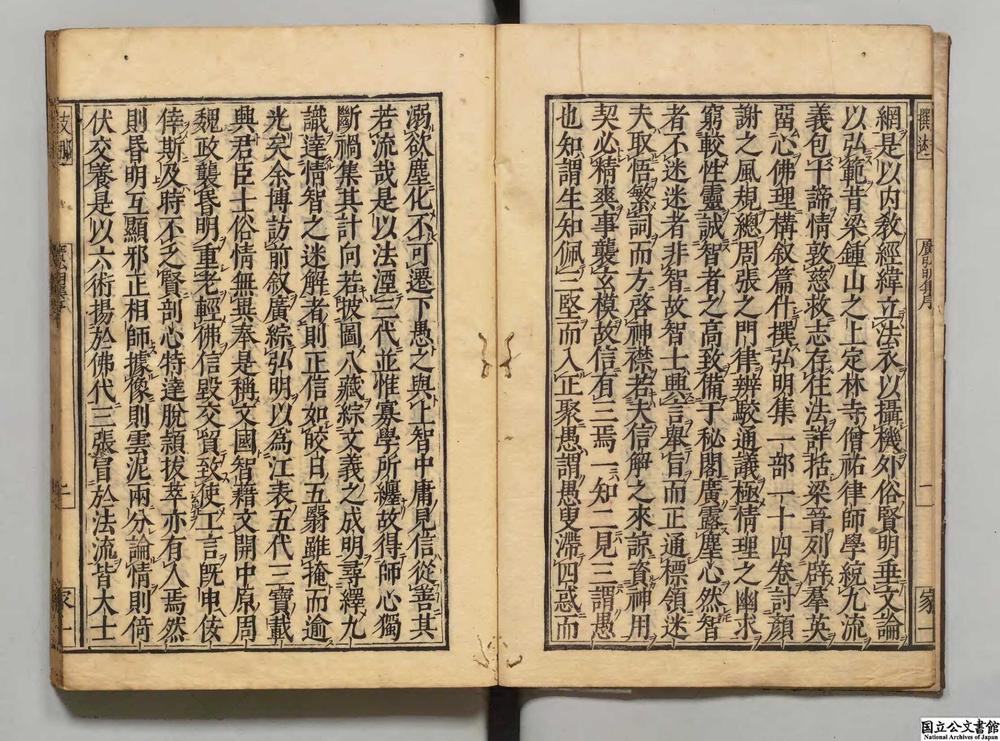 網是以内敎經緯立法衣以攝機外俗賢明垂文論
以弘範昔梁鍾山之上定林寺僧祐律師學統九流
義包十諦情敦慈救志存住法詳括梁晉列辟羣英
留心佛理構叙篇什撰弘明集一部一十四卷討顔
謝之風規總周張之門律辦駮通議極情理之幽求
窮較性靈誠智者之高致備于秘閣廣露塵心然智
者不迷迷者非智故智士興言舉旨而正通標領迷
夫取悟繁詞而方啓神襟若夫信解之來諒資神用
契必精爽事襲玄模故信有三焉一知二見三謂愚
也知謂生知佩三堅而入正聚愚謂愚叟滯四惑而
溺欲塵化不可遷下愚之與上智中庸見信從善其
若流哉是以法湮三代並惟寡學所纏故得師心獨
斷禍集其計向若披圖八藏綜文義之成明尋繹九
識達情智之迷解者則正信如皎日五翳雖掩而逾
光矣余博訪前叙廣綜弘明以為江表五代三寶載
興君臣士俗情無異奉是稱文國智藉文開中原周
魏政襲昏明重老輕佛信毀交貿致使工言既申佞
倖斯及時不乏賢剖心特達脫頴拔萃亦有人焉然
則昏明互顯邪正相師據像則雲泥兩分論情則倚
伏交養是以六術揚於佛代三張冒於法流皆大士
廣弘明集序
一
家一
國立公文書館
National Archives of Japan